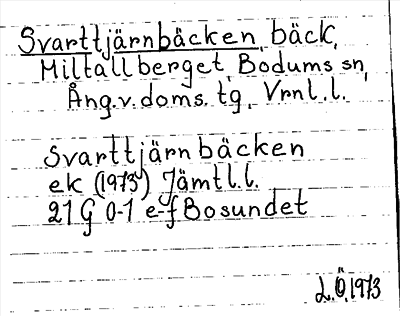 Svarttjärnbäcken, bäck,
Miltallberget, Bodums sn,
Ång.v.doms. tg, Vrnl.l.
Svarttjärnbäcken
ek (1973) Jämtl.l.
21 G 0-1 e-f Bosundet
L.Ö.1973